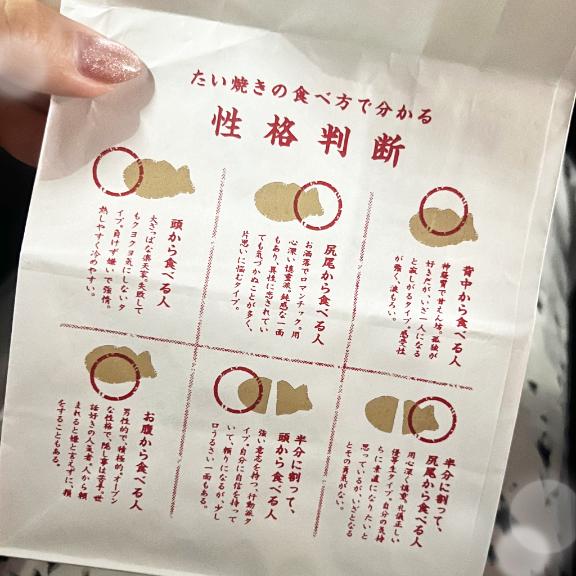 たい焼きの食べ方で分かる
性格判断
頭から食べる人
大ざっぱな楽天家。失敗して
もクヨクヨ気にしないタ
イプ。負けず嫌いで強情。
熱しやすく冷めやすい。
尻尾から食べる人
お洒落でロマンチック。用
心深い慎重派。鈍感な一面
もあり、異性に恋されてい
ても気づかぬことが多く、
片思いに悩むタイプ。
背中から食べる人
神経質で甘えん坊。孤独が
好きだがいざ一人になる
と寂しがるタイプ。感受性
が強く、涙もろい。
お腹から食べる人
男性的で、積極的。オープン
な性格で、隠し事は苦手。世
話好きの人気者。人から頼
まれると嫌と言えずに、損
をすることもある。
半分に割って、
頭から食べる人
強い意志を持つ、行動派タ
イプ。自分に自信を持って
いて、頼りになるが、少し
口うるさい一面もある。
半分に割って、
尻尾から食べる人
用心深く慎重、礼儀正しい
優等生タイプ。自分の気持
ちに素直になりたいと
思っているが、いざとなる
とその勇気がない。